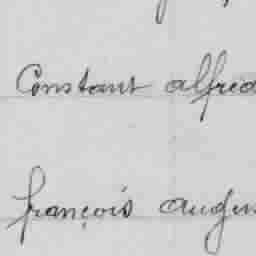 Constant alfred
françois augus